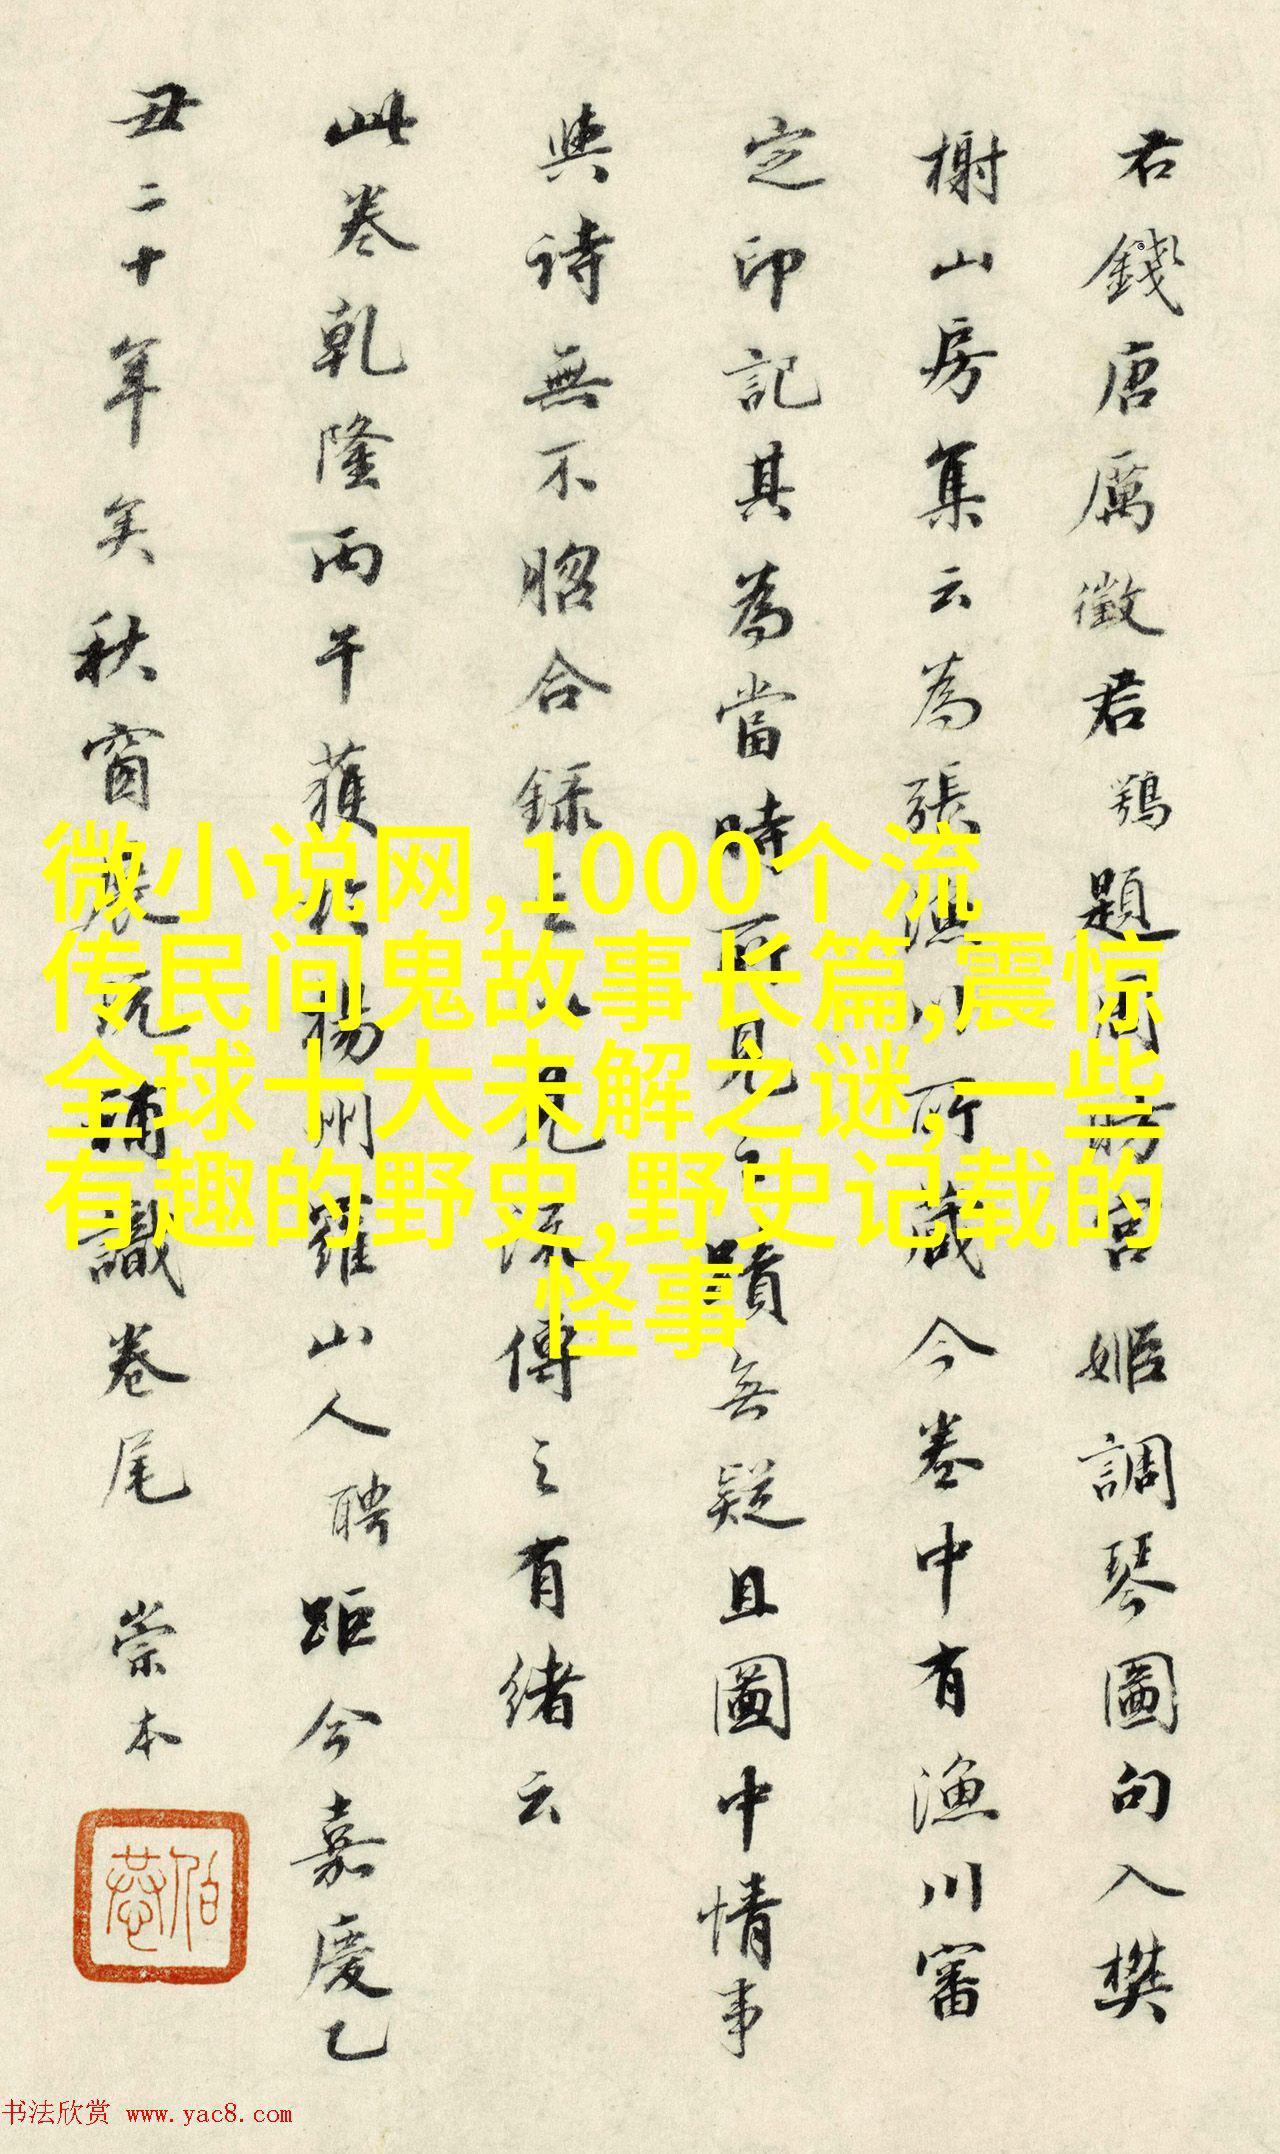 君錢唐厲徵君鶚題周昉宮姬調琴圖句入樊
榭山房集云為張漁川所藏今卷中有漁川審
定印記其為當時所見之蹟無疑且圖中情事
與詩無不脗合錄之以見流傳之有緒云
此卷乾隆丙午獲於揚州羅山人聘距今嘉慶乙
丑二十年矣秋窗展玩補識卷尾 崇本
微小说网,1000个流
传民间鬼故事长篇,震惊
全球十大未解之谜,一些
有趣的野史,野史记载的
怪事
书法欣赏 www.yac8.com